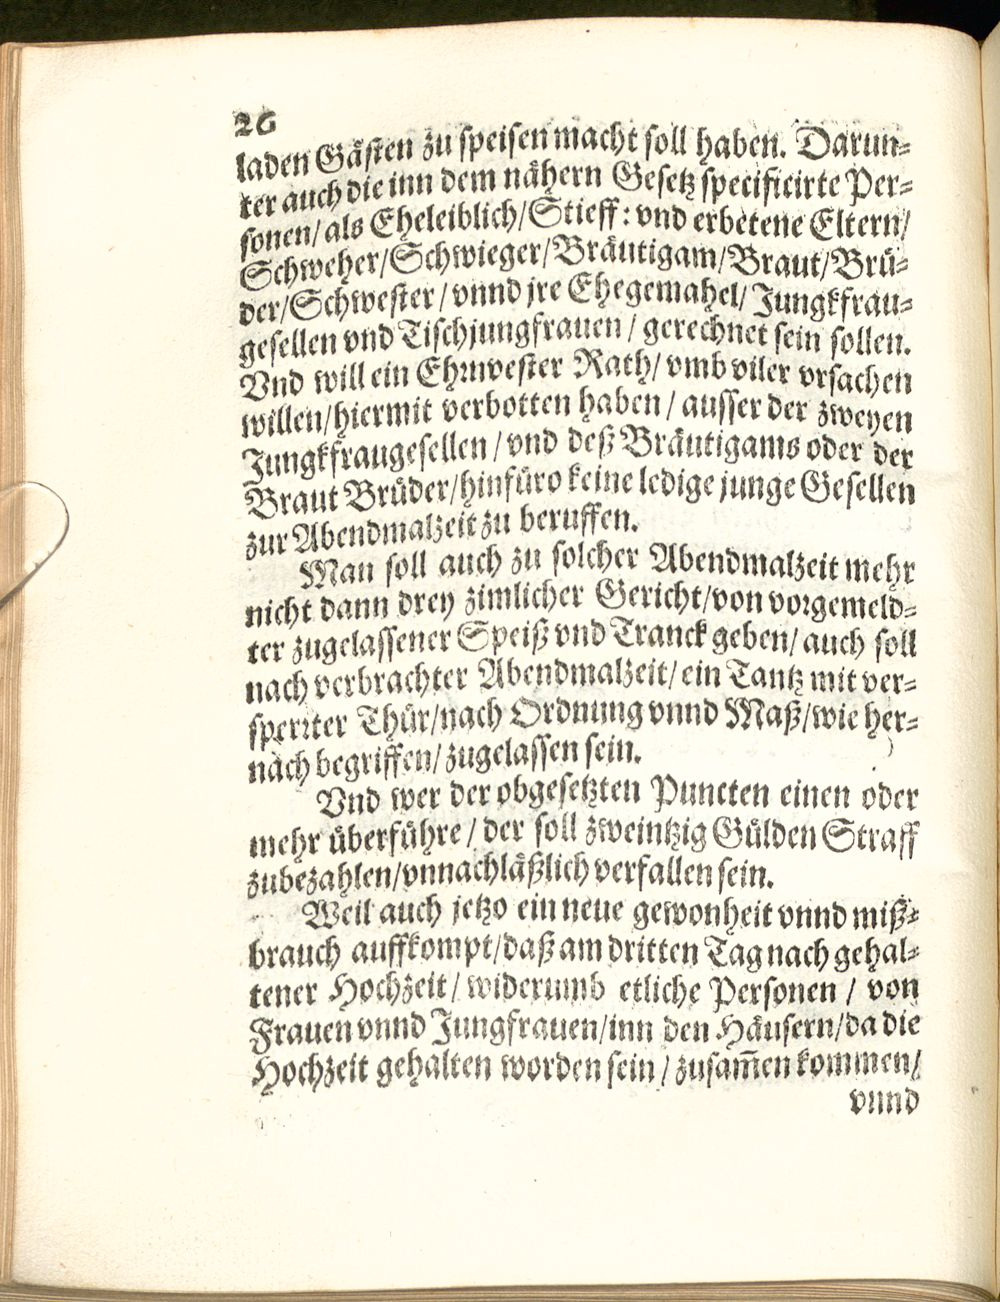 26
laden Gästen zu speisen macht soll haben. Darun-
ter auch die inn dem nähern Gesetz specificirte Per-
sonen/ als Eheleiblich/ Stieff: vnd erbetene Eltern/
Schweher/ Schwieger/ Bräutigam/ Braut/ Brü-
der/ Schwester/ vnnd jre Ehegemahel/ Jungkfrau-
gesellen vnd Tischjungfrauen/ gerechnet sein sollen.
Vnd will ein Ehrnvester Rath/ vmb viler vrsachen
willen/ hiermit verbotten haben/ ausser der zweyen
Jungkfraugesellen/ vnd deß Bräutigams oder der
Braut Brüder/ hinfüro keine ledige junge Gesellen
zur Abendmalzeit zu beruffen.
Man soll auch zu solcher Abendmalzeit mehr
nicht dann drey zimlicher Gericht/ von vorgemeld-
ter zugelassener Speiß vnd Tranck geben/ auch soll
nach verbrachter Abendmalzeit/ ein Tantz mit ver-
sperrter Thür/ nach Ordnung vnnd Maß/ wie her-
nach begriffen/ zugelassen sein.
Vnd wer der obgesetzten Puncten einen oder
mehr überführe/ der soll zweintzig Gülden Straff
zubezahlen/ vnnachläßlich verfallen sein.
Weil auch jetzo ein neue gewonheit vnnd miß-
brauch auffkompt/ daß am dritten Tag nach gehal-
tener Hochzeit/ widerumb etliche Personen/ von
Frauen vnnd Jungfrauen/ inn den Häusern/ da die
Hochzeit gehalten worden sein/ zusam̃en kommen/
vnnd